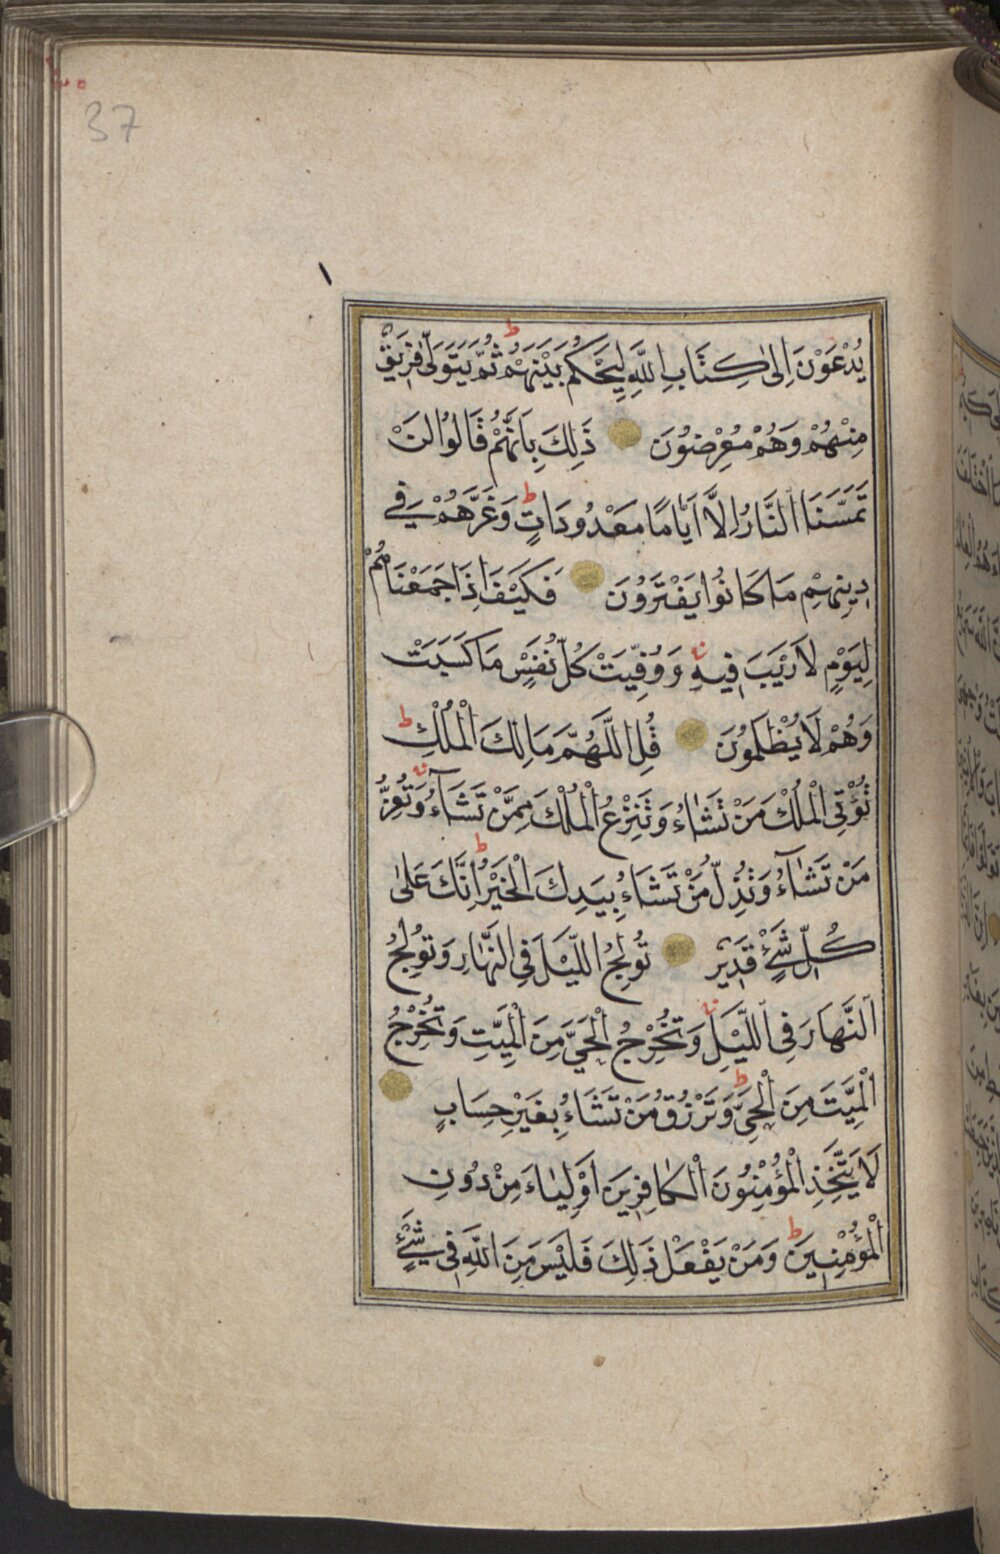 37
يُدْعَوْنَ اِلٰى كِتَابِ اللّٰهِ لِيَحْكُمَ بَيْنَهُمْ ط ثُمَّ يَتَوَلّٰى فَرِيقٌ
مِنْهُمْ وَهُمْ مُعْرِضُونَ ذٰلِكَ بِاَنَّهُمْ قَالُوا لَنْ
تَمَسَّنَا النَّارُ اِلَّا اَيَّامًا مَعْدُودَاتٍ ط وَغَرَّهُمْ فِي
دِينِهِمْ مَا كَانُوا يَفْتَرُونَ فَكَيْفَ اِذَا جَمَعْنَاهُمْ
لِيَوْمٍ لَا رَيْبَ فِيهِ وَوُفِّيَتْ كُلُّ نَفْسٍ مَا كَسَبَتْ
وَهُمْ لَا يُظْلَمُونَ قُلِ اللّٰهُمَّ مَالِكَ الْمُلْكِ ط
تُؤْتِي الْمُلْكَ مَنْ تَشَاءُ وَتَنْزِعُ الْمُلْكَ مِمَّنْ تَشَآءُ وَتُعِزُّ
مَنْ تَشَآءُ وَتُذِلُّ مَنْ تَشَاءُ بِيَدِكَ الْخَيْرُ ط اِنَّكَ عَلٰى
كُلِّ شَيْءٍ قَدِيرٌ تُولِجُ اللَّيْلَ فِي النَّهَارِ وَتُولِجُ
النَّهَارَ فِي اللَّيْلِ وَتُخْرِجُ الْحَيَّ مِنَ الْمَيِّتِ وَتُخْرِجُ
الْمَيِّتَ مِنَ الْحَيِّ ط وَتَرْزُقُ مَنْ تَشَاءُ بِغَيْرِ حِسَابٍ
لَا يَتَّخِذِ الْمُؤْمِنُونَ الْكَافِرِينَ اَوْلِيَاءَ مِنْ دُونِ
الْمُؤْمِنِينَ ط وَمَنْ يَفْعَلْ ذٰلِكَ فَلَيْسَ مِنَ اللّٰهِ فِي شَيْءٍ